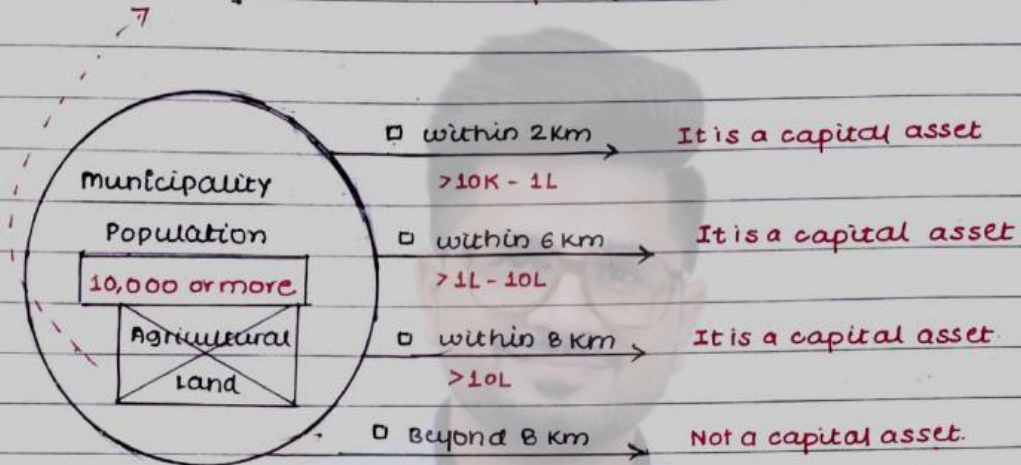 Municipality
Population
10,000 or more
Agricultural
Land
within 2 Km
>10K - 1L
It is a capital asset
within 6 Km
>1L - 10L
It is a capital asset
within 8 Km
>10L
It is a capital asset.
Beyond 8 Km
Not a capital asset.